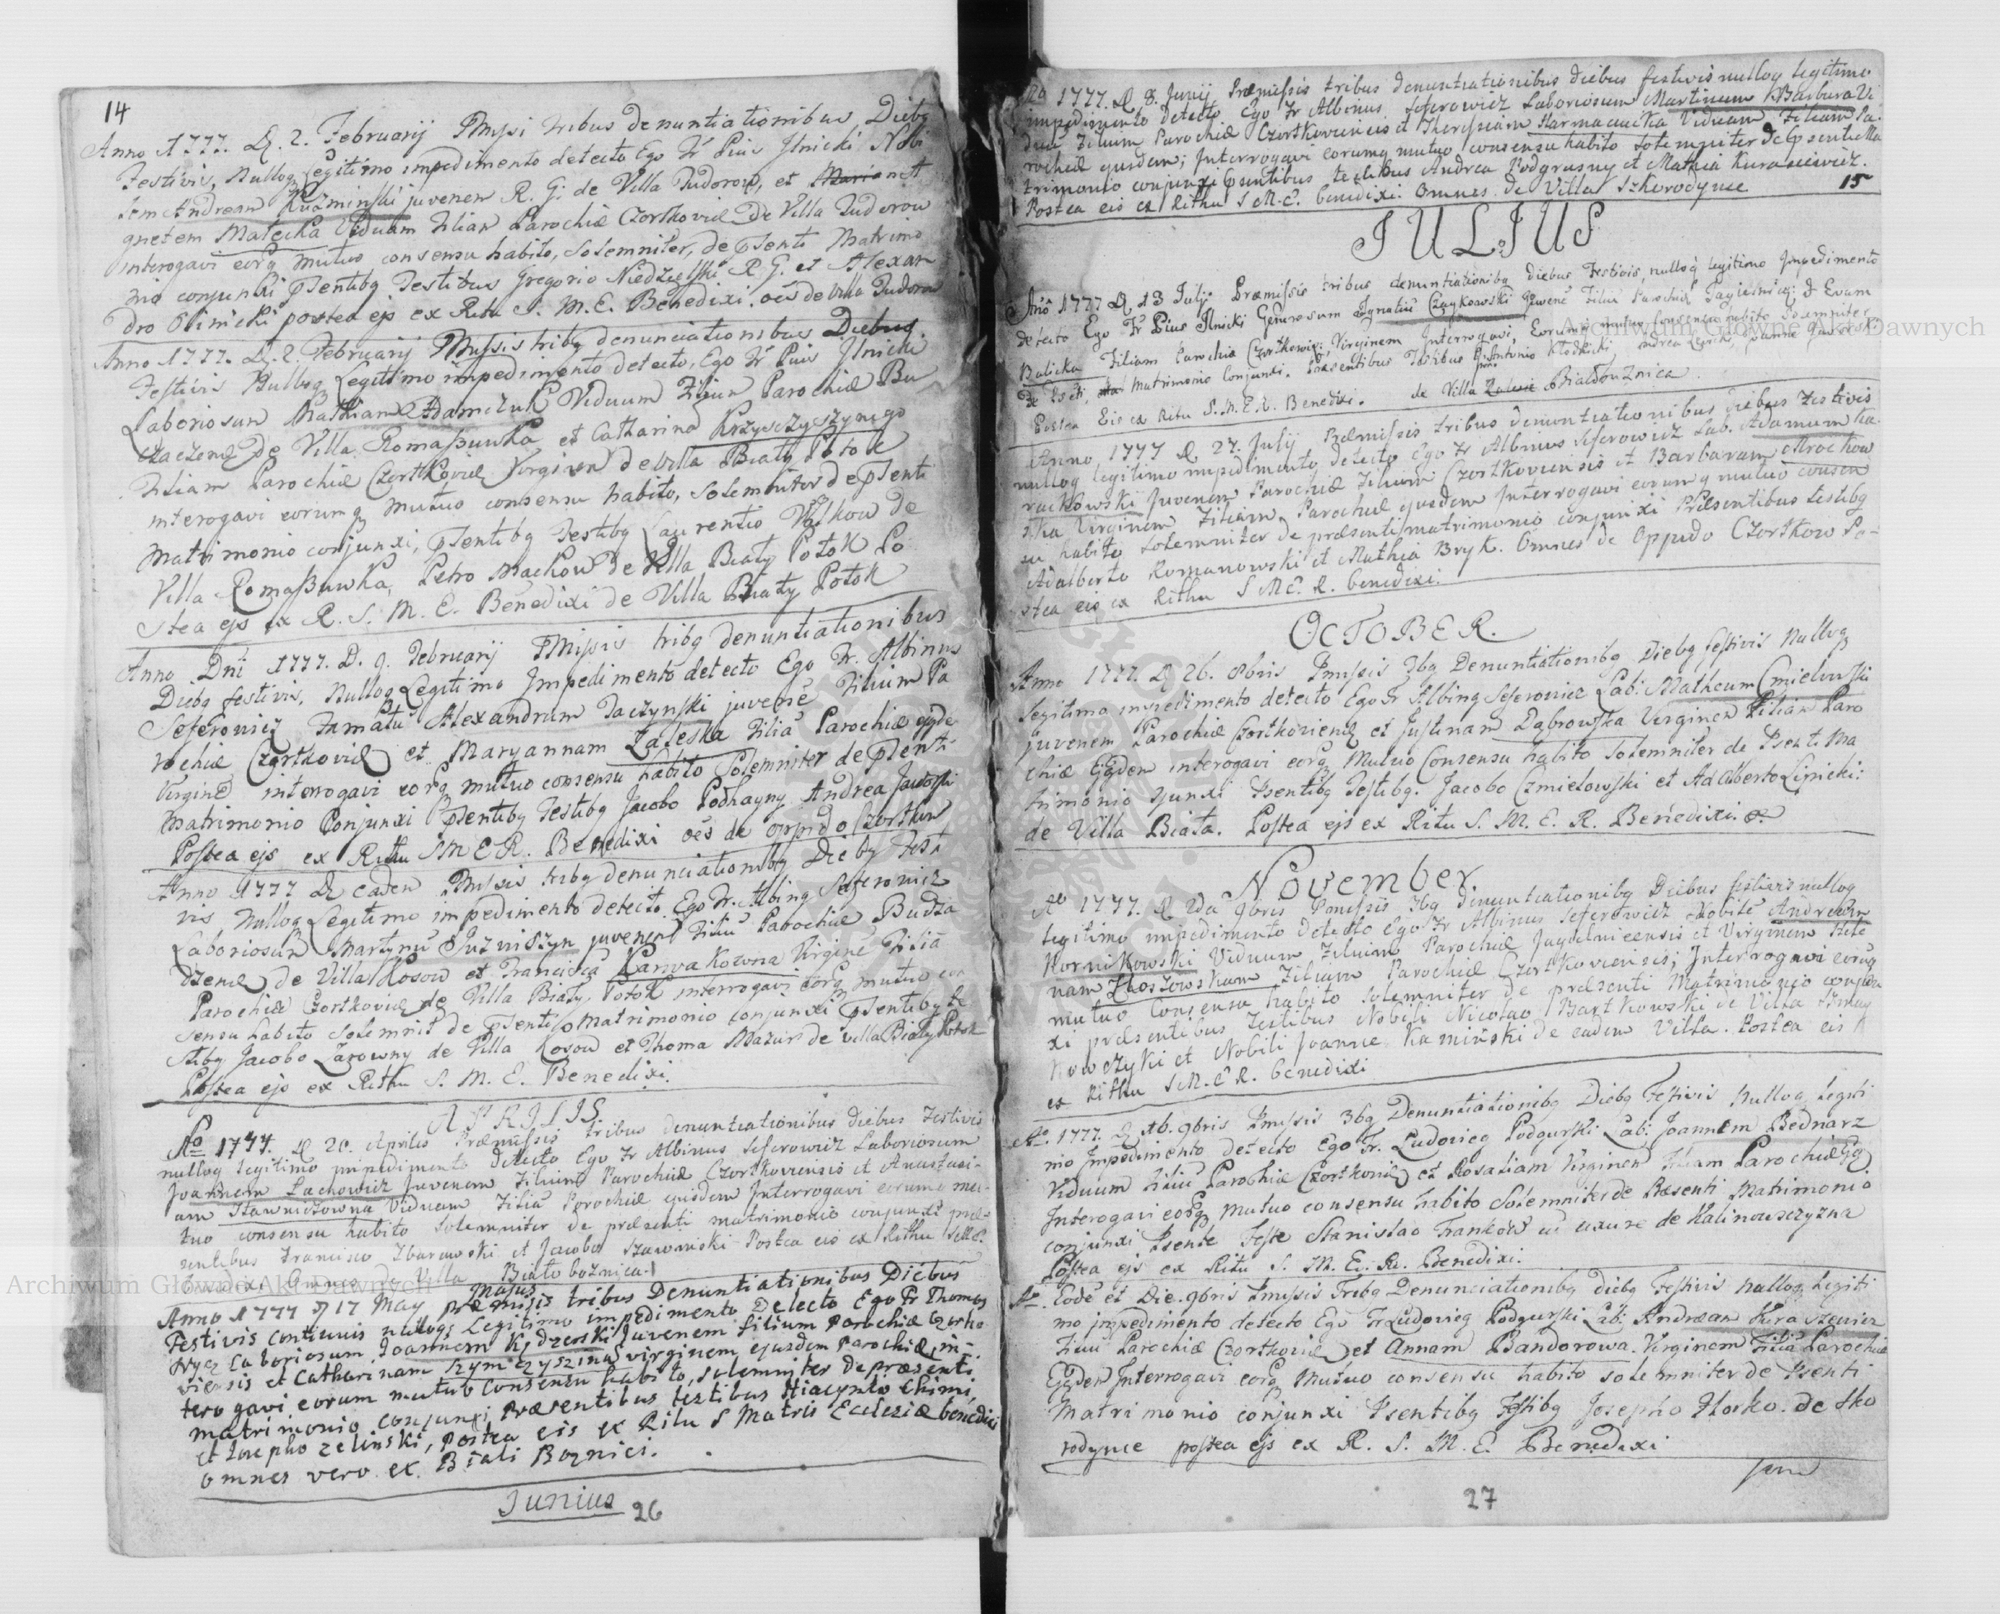 14
Anno 1777. D. 2. Februarij Pmissi tribus denuntiationibus, Diebq
Festivis, Nulloq Legitimo impedimento detecto Ego Fr Pius Ilnicki Nobi
lem Andream Kuzminski juvenem R. G. de Villa Pudorow, et Marian A
gnetem Malecka Viduam Filian Parochiæ Czortkoviæ De Villa Pudorow
interogavi eorq mutuo consensu habito, Solemniter, de psenti Matrimo
nio conjunxi psentibq Testibus Gregorio Niedzielski R. G. et Alexan
dro Olinicki postea ejs ex Ritu S. M. E. Benedixi. oēs de Villa Pudorow
Anno 1777. D. 2. Februarij Pmissis tribq denunciationibus Diebus
Festivis Nulloq Legitimo impedimento detecto, Ego Fr Pius Ilnicki
Laboriosum Mathiam Adamczuk Viduum Filiun Parochiæ Bu
czaczenę de Villa Romaszuwka et Catharinā Krzysczyszynigo
Filiam Parochiæ Czortkoviæ Virginem de Villa Biały Potok
interogavi eorumq Mutuo consensu habito, Solemniter de psenti
Matrimonio conjunxi, psentibq Testibq Laurentio Wołkow de
Villa Romaszuwka, Petro Machow De Villa Biały Potok Po
stea ejs ex R. S. M. E. Benedixi de Villa Biały Potok
Anno Dni 1777. D. 9. Februarij Pmissis tribq denuntiationibus
Diebq festivis, Nulloq Legitimo Impedimento detecto Ego Fr. Albinus
Seferowicz Famatū Alexandrum Paczynski juvenē Filium Pa
rochiæ Czortkoviæ et Maryannam Zaleska Filiā Parochiæ ejsde
Virginē interrogavi eorq mutuo consensu habito Solemniter de psenti
Matrimonio Conjunxi Psentibq Testibq Jacobo Podhayny Andrea
Postea ejs ex Ritu S M E R. Benedixi oēs de oppido Czortkow
Anno 1777 D eaden Pmissis tribq denunciationibq Diebq Festi
vis Nulloq Legitimo impedimento detecto Ego Fr. Albinq Seferowicz
Laboriosum Martynū juvenem Filiū Parochiæ Budza
Dzenę de Villa Kosow et Francisca Karwakowna Virginē Filiā
Parochiæ Czortkoviæ de Villa Biały Potok interrogavi eorq mutuo con
sensu habito Solemnit de psenti matrimonio conjunxi Psentibq te
stibq Jacobo Łazowny de Villa Kosow et Thoma Mazur de Villa Biały Potok
Postea ejs ex Ritu S. M. E. Benedixi.
APRILIS
Ao 1777. D 20. Aprilis Præmissis tribus denuntiationibus diebus Festivis
nulloq legitimo impedimento detecto Ego Fr Albinus Seferowicz Laboriosum
Joannem Lachowicz Juvenem Filium Parochiæ Czortkoviensis et Anastasi-
am Sławniszowna Viduam Filiā Parochiæ ejusdem Interrogavi eorumq mu-
tuo consensu habito solemniter de præsenti matrimonio conjunxi præ-
sentibus Francisco Zbarawski et Jacobo Szawinski Postea eis ex Rithu
benedixi Omnes de Villa Białobożnica.
Majus
Anno 1777 D 17 May præmisis tribus Denuntiationibus Diebus
Festivis continuis nulloqs Legitimo impedimento Detecto Ego Fr Thomas
Hryc Laboriosum Joannem Kędzerski Juvenem filium Parochiæ Czortko
viensis et Catharinam Szymczyszina virginem ejusdem Parochiæ, in-
terogavi eorum mutuo consensu habito, solemniter De præsenti
matrimonio conjunxi Præsentibus testibus Hiacynto Chimi,
et Josepho Zelinski, Postea eis ex Ritu S Matris Ecclesiæ benedixi
omnes vero ex Biali Boznici.
Junius
26
Ao 1777. D 8. Junij Præmissis tribus denuntiationibus diebus festivis nulloq legitimo
impedimento detecto Ego Fr Albinus Seferowicz Laboriosum Martinum Barbura Vi
duū Filium Parochiæ Czortkoviensis et Theresiam Harmaciucka Viduam Filiam Pa-
rochiæ ejusdem; Interrogavi eorumq mutuo consensu habito solemniter de psenti Ma
trimonio conjunxi psentibus testibus Andrea Podgrusny et Mathia Kuraniewicz.
Postea eis ex Rithu S M. E. benedixi. Omnes de Villa Szkorodynce
15
JULIUS
Ano 1777 D. 13 Julij Præmissis tribus denuntiationibq diebus Festivis, nulloq legitimo Impedimento
detecto Ego Fr Pius Ilnicki Generosum Ignatiū Czaykowski Juvenē Filiū Parochiæ Jagielnicę; & Evam
Balicka Filiam Parochiæ Czortkowię; Virginem, Interrogavi, Eorumq mutuo Consensu habito Solemniter
De Psēti Matrimonio Conjunxi. Præsentibus Testibus P. Antonio Kłodnicki
Postea Eis ex Ritu S. M. E. R. Benedixi. de Villa Białobuznica.
Anno 1777 D. 27. July Præmissis tribus denuntiationibus Diebus Festivis
nulloq legitimo impedimento detecto Ego Fr Albinus Seferowicz Lab. Adamum Ka-
raczkowski Juvenem Parochiæ Filium Czortkoviensis et Barbaram Mrochow
ska Virginem Filiam Parochiæ ejusdem Interrogavi eorumq mutuo consen
su habito solemniter de præsenti matrimonio conjunxi Præsentibus testibq
Adalberto Romanowski et Mathia Bryk. Omnes de Oppido Czortkow Po-
stea eis ex Rithu S M E. R. benedixi.
OCTOBER.
Anno 1777. D 26. 8bris Pmissis 3bq Denuntiationibq Diebq festivis Nulloq
legitimo impedimento detecto Ego Fr Albinq Seferowicz Lab: Matheum Cmielowski
juvenem Parochiæ Czortkovienę et Justinam Dąbrowska Virginem Filiam Paro
chiæ Ejsden interogavi eorq Mutuo Consensu habito Solemniter de Psenti Ma
trimonio cjunxi Psentibq Testibq. Jacobo Czmielowski et Adalberto Lipicki:
de Villa Biała. Postea ejs ex Ritu S. M. E. R. Benedixi.
November.
Ao 1777. D 2da 9bris Pmissis 3bq Denuntiationibq Diebus festivis nulloq
legitimo impedimento detecto Ego Fr Albinus Seferowicz Nobilē Andream
Kornikowski Viduum Filium Parochiæ Jagielnicensis et Virginem Hele
nam Złoszowskam Filiam Parochiæ Czortkoviensis; Interrogavi eorūq
mutuo consensu habito solemniter de præsenti Matrimonio conjun
xi præsentibus testibus Nobili Nicolao Bartkowski de Villa
Nowczyki et Nobili Joanne Kaminski de eadem Villa. Postea eis
ex Rithu S M. E R. benedixi
Ao. 1777. D 9bris Pmissis 3bq Denuntiationibq Diebq Festivis Nulloq Legiti
mo Impedimento detecto Ego Fr. Ludovicq Podgurski Lab: Joannem Bednarz
Viduum Filiū Parochiæ Czortkovię et Rosaliam Virginem Filiam Parochiæ Ejq
Interogavi eorq Mutuo consensu habito Solemniter de Præsenti Matrimonio
conjunxi Psente Teste Stanislao Frankow cū uxure de Kalinowszczyzna
Postea ejs ex Ritu S. M. E. R. Benedixi.
Ao. Eodē et Die. 9bris Pmissis Tribq Denunciationibq diebq Festivis Nulloq Legiti
mo jmpedimento detecto Ego Fr Ludovicq Podgurski Lab: Andream Kuraszewicz
Filiū Parochiæ Czortkovię et Annam Bandorowa. Virginem Filiā Parochiæ
Ejqden Interrogavi eorq Mutuo consensu habito solemniter de Psenti
Matrimonio conjunxi Psentibq Testibq Josepho Horko. de Sko
rodynce postea ejs ex R. S. M. E. Benedixi
27
Archiwum Główne Akt Dawnych
Archiwum Główne Akt Dawnych